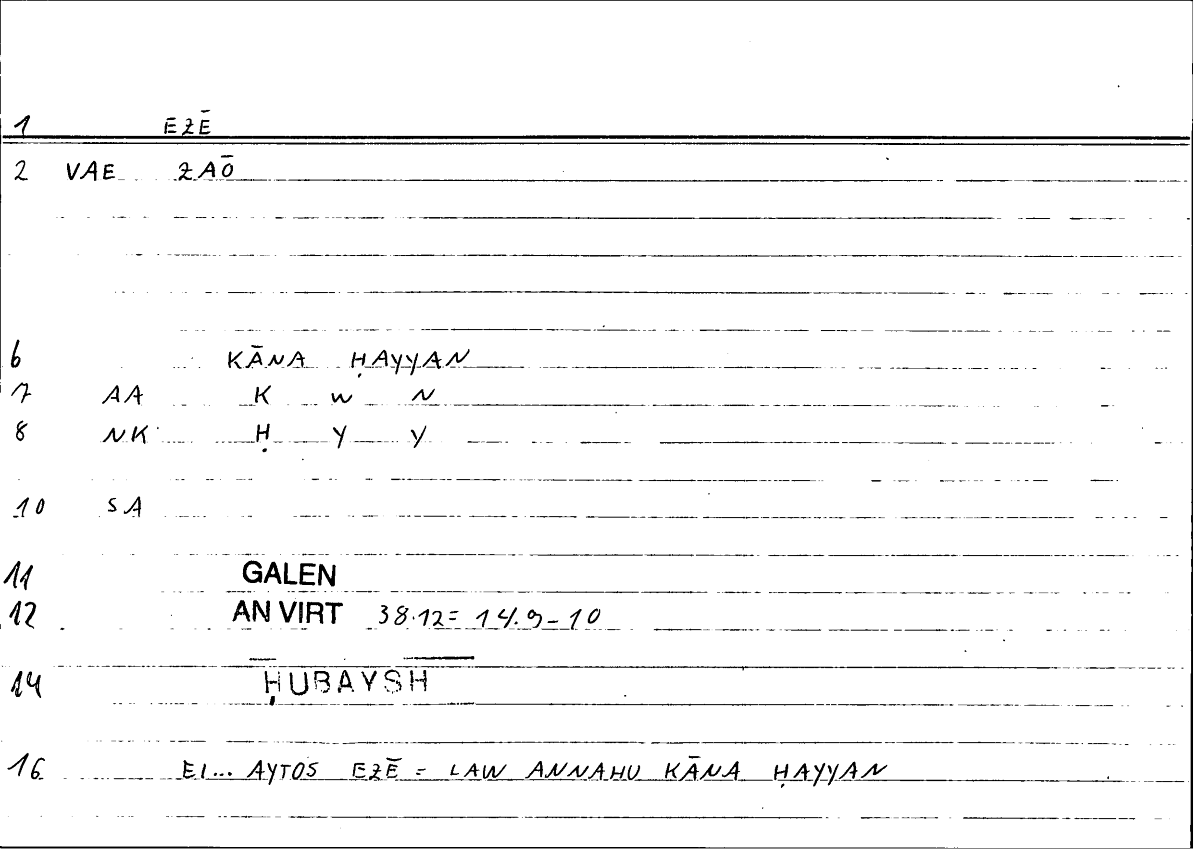 1 EZĒ
2 VAE ZAŌ
6 KĀNA ḤAYYAN
7 AA K W N
8 NK Ḥ Y Y
10 SA
11 GALEN
12 AN VIRT 38.12= 14.9-10
14 ḤUBAYSH
16 EI... AYTOS EZĒ = LAW ANNAHU KĀNA ḤAYYAN